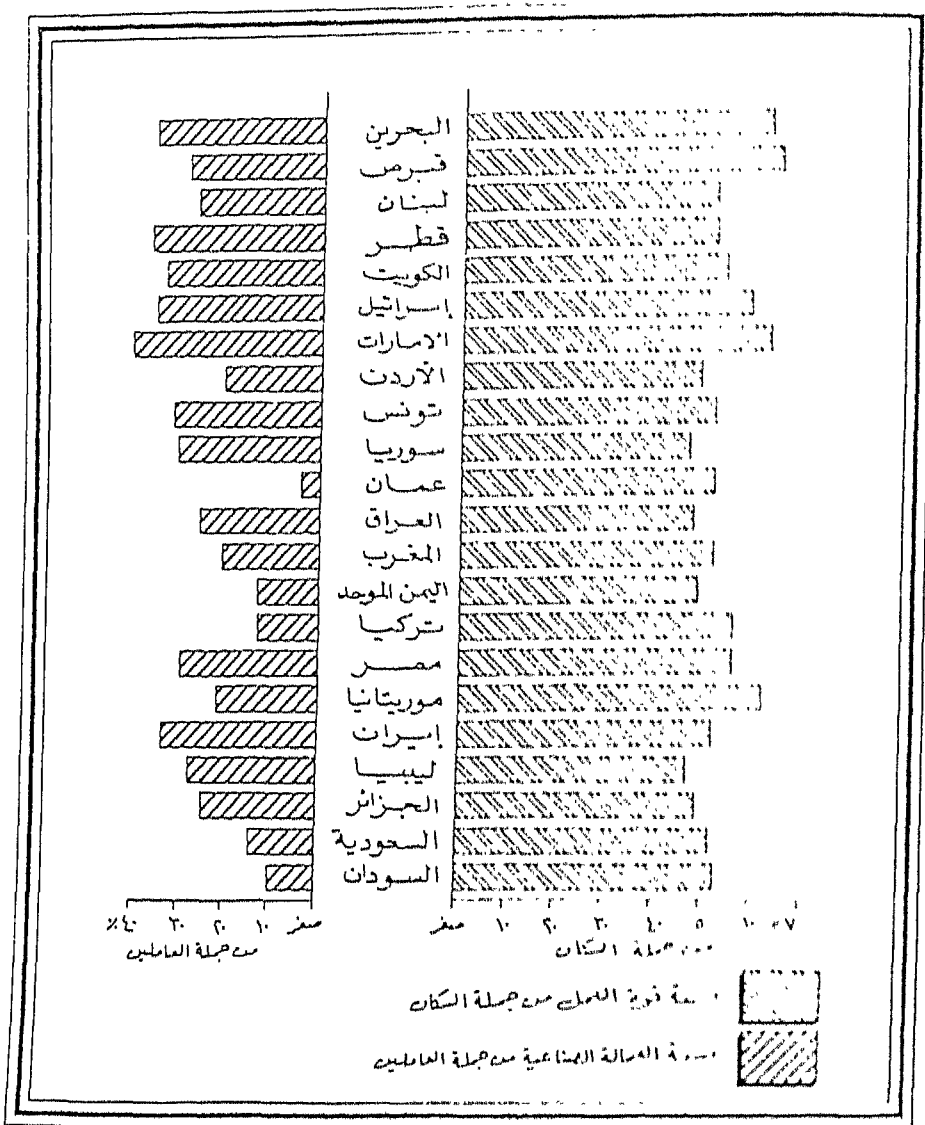 البحرين
قبرص
لبنان
قطر
الكويت
إسرائيل
الامارات
الأردن
تونس
سوريا
عمان
العراق
المغرب
اليمن الموحد
تركيا
مصر
موريتانيا
إيران
ليبيا
الجزائر
السعودية
السودان
صفر ١٠ ٢٠ ٣٠ ٤٠٪
صفر ١٠ ٢٠ ٣٠ ٤٠ ٥ ١٠ ٧
من جملة العاملين
جملة السكان
قوة العمل من جملة السكان
العمالة الصناعية من جملة العاملين